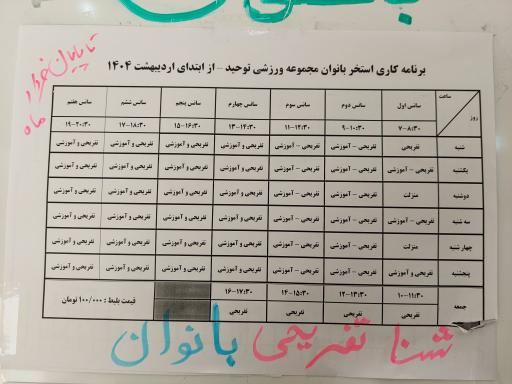 تا پایان خرداد ماه
برنامه کاری استخر بانوان مجموعه ورزشی توحید - از ابتدای اردیبهشت ۱۴۰۴
ساعت روز سانس اول سانس دوم سانس سوم سانس چهارم سانس پنجم سانس ششم سانس هفتم
۷-۸:۳۰ ۹-۱۰:۳۰ ۱۱-۱۲:۳۰ ۱۳-۱۴:۳۰ ۱۵-۱۶:۳۰ ۱۷-۱۸:۳۰ ۱۹-۲۰:۳۰
شنبه تفریحی تفریحی - آموزشی تفریحی - آموزشی تفریحی و آموزشی تفریحی و آموزشی تفریحی و آموزشی تفریحی و آموزشی
یکشنبه تفریحی - آموزشی تفریحی - آموزشی تفریحی - آموزشی تفریحی و آموزشی تفریحی و آموزشی تفریحی و آموزشی تفریحی و آموزشی
دوشنبه منزلت تفریحی - آموزشی تفریحی - آموزشی تفریحی و آموزشی تفریحی و آموزشی تفریحی و آموزشی تفریحی و آموزشی
سه شنبه تفریحی - آموزشی تفریحی - آموزشی تفریحی - آموزشی تفریحی و آموزشی تفریحی و آموزشی تفریحی و آموزشی تفریحی و آموزشی
چهار شنبه منزلت تفریحی - آموزشی تفریحی - آموزشی تفریحی و آموزشی تفریحی و آموزشی تفریحی و آموزشی تفریحی و آموزشی
پنجشنبه تفریحی و آموزشی تفریحی و آموزشی تفریحی و آموزشی تفریحی و آموزشی تفریحی و آموزشی تفریحی و آموزشی تفریحی و آموزشی
جمعه ۱۰-۱۱:۳۰ ۱۲-۱۳:۳۰ ۱۴-۱۵:۳۰ ۱۶-۱۷:۳۰ قیمت بلیط : ۱۰۰/۰۰۰ تومان
تفریحی تفریحی تفریحی تفریحی
شنا تفریحی بانوان